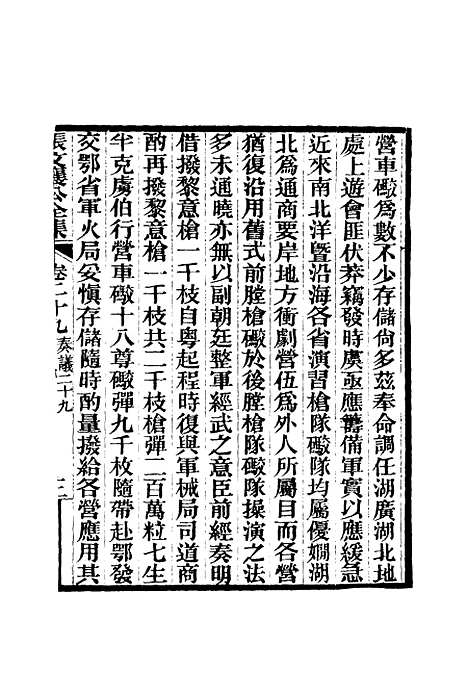 營車礮爲數不少存儲尙多茲奉命調任湖廣湖北地
處上遊會匪伏莽竊發時虞亟應籌備軍實以應緩急
近來南北洋曁沿海各省演習槍隊礮隊均屬優嫺湖
北爲通商要岸地方衝劇營伍爲外人所屬目而各營
猶復沿用舊式前膛槍礮於後膛槍隊礮隊操演之法
多未通曉亦無以副朝廷整軍經武之意臣前經奏明
借撥黎意槍一千枝自粵起程時復與軍械局司道商
酌再撥黎意槍一千枝共二千枝槍彈二百萬粒七生
半克虜伯行營車礮十八尊礮彈九千枚隨帶赴鄂發
交鄂省軍火局妥愼存儲隨時酌量撥給各營應用其
張文襄公全集 卷二十九 奏議二十九